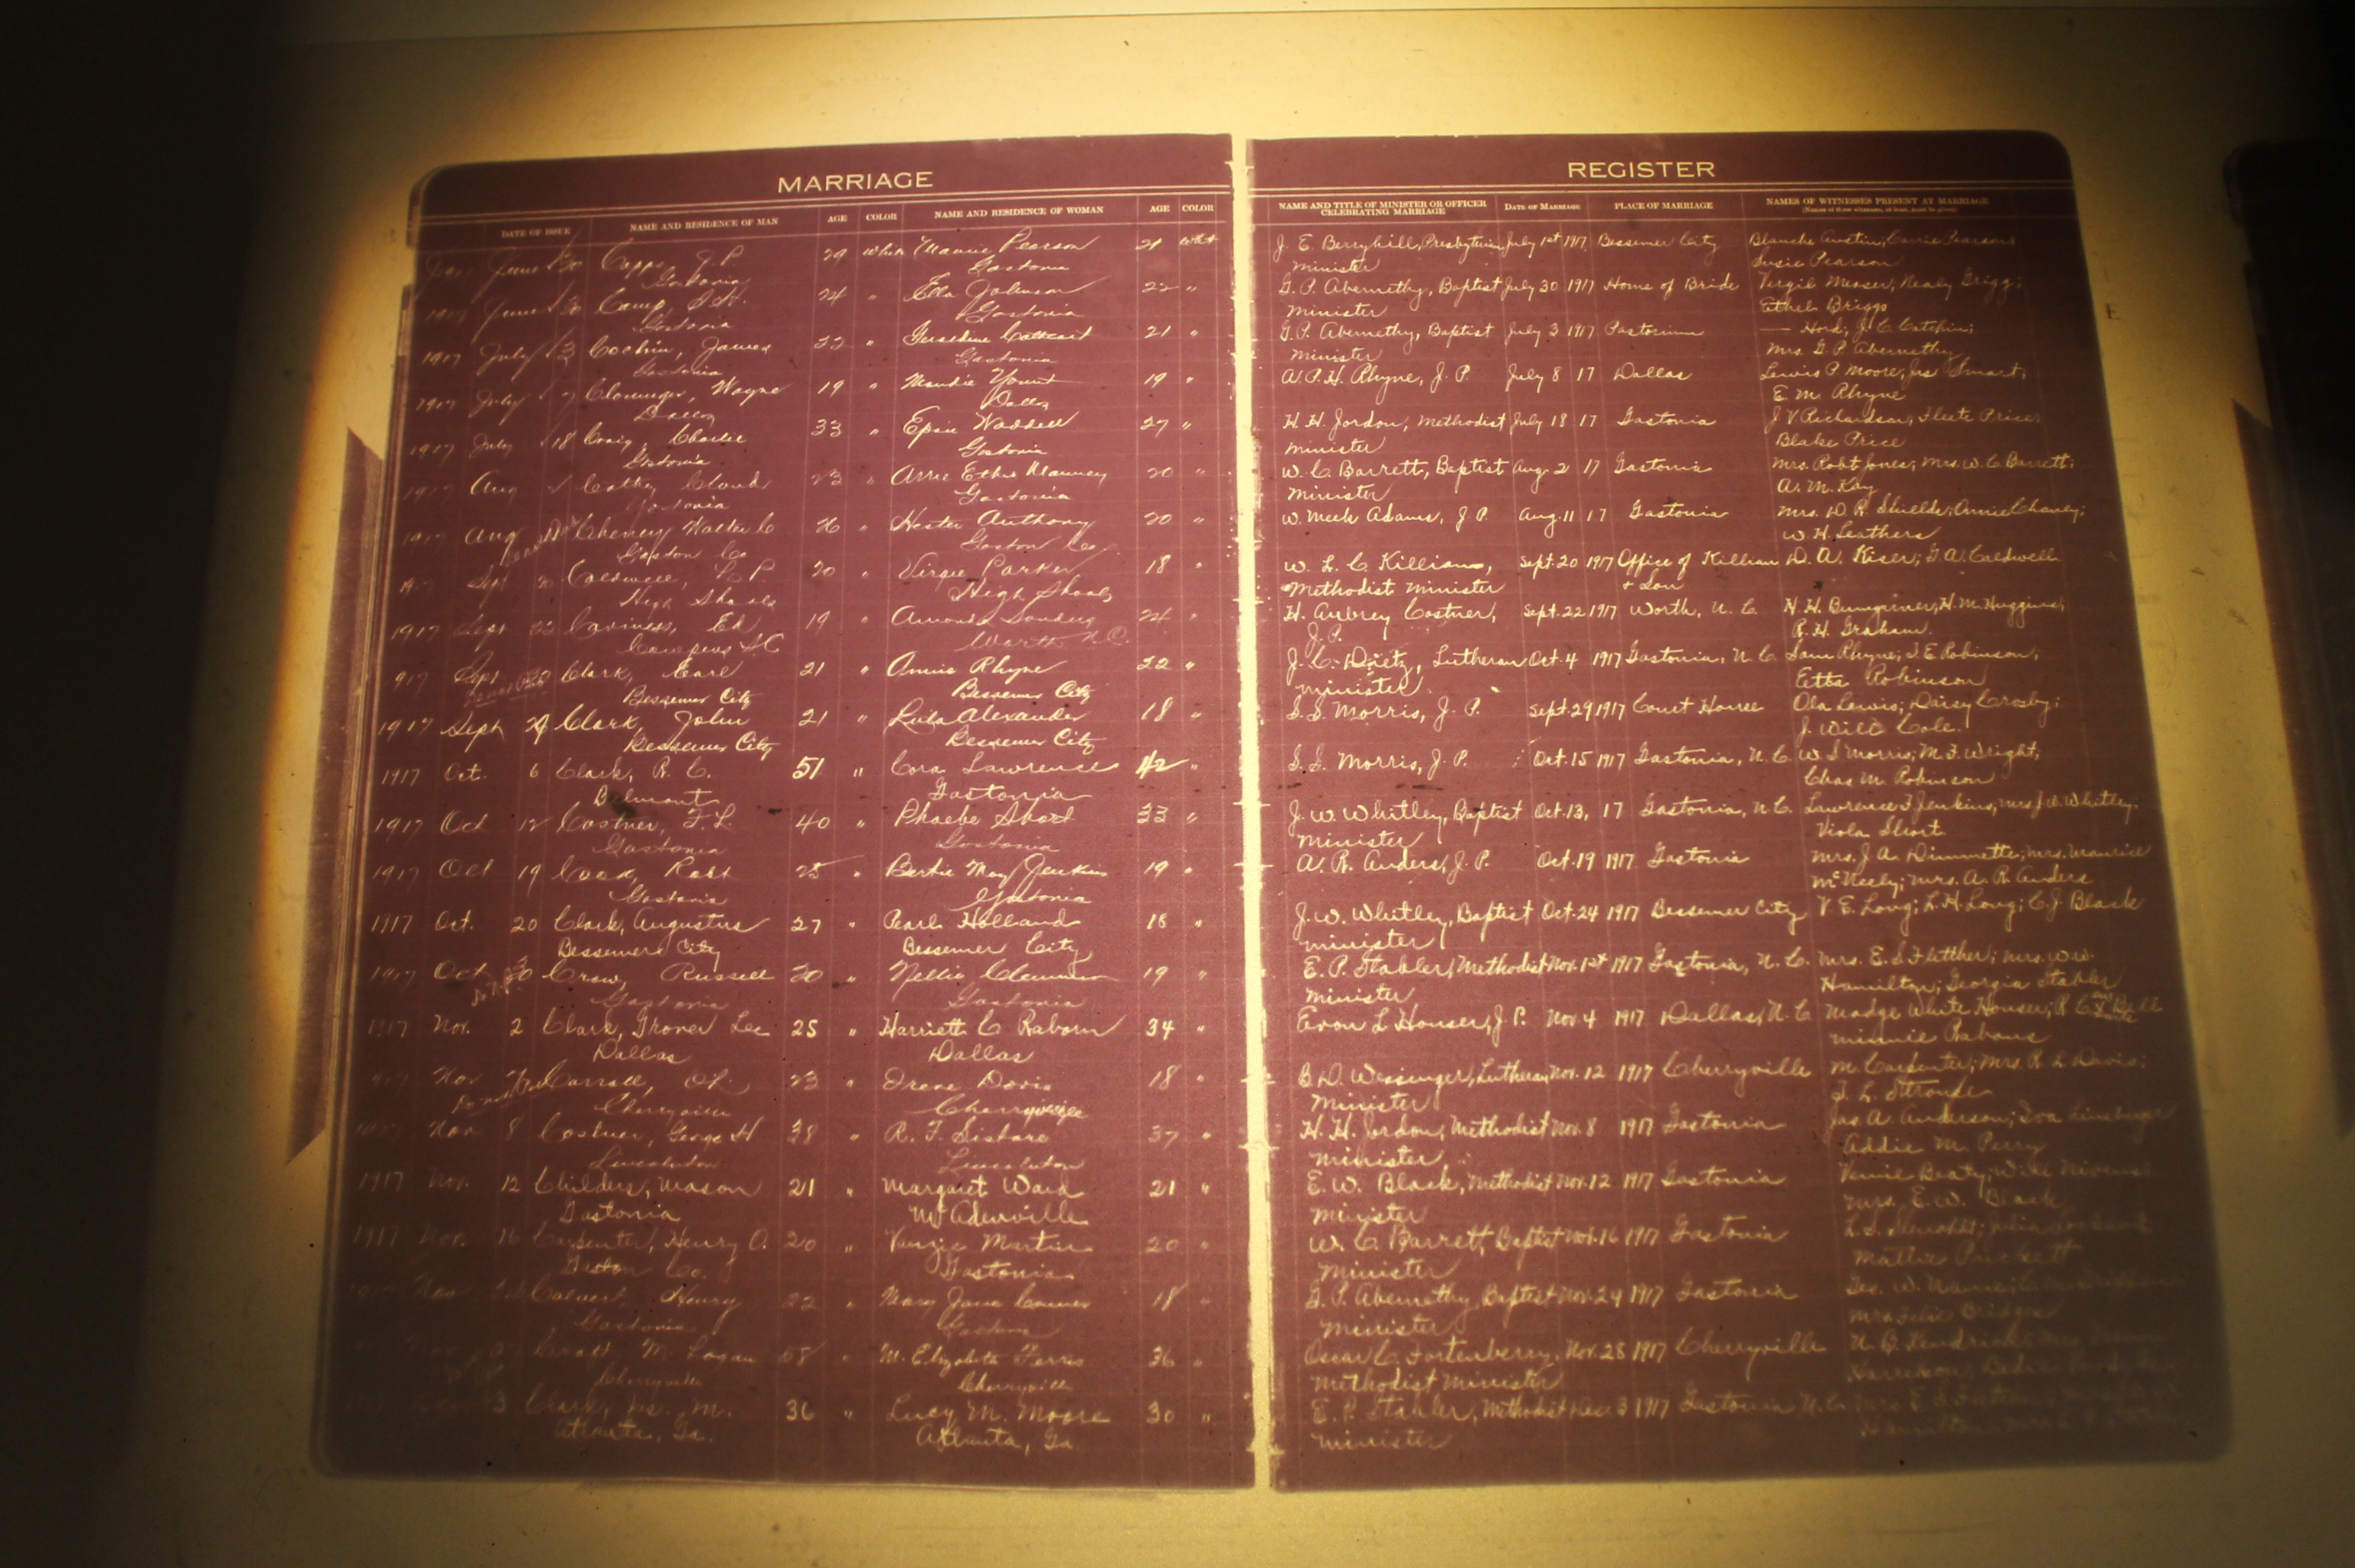 MARRIAGE
DATE OF ISSUE NAME AND RESIDENCE OF MAN AGE COLOR NAME AND RESIDENCE OF WOMAN AGE COLOR
June 30 Capps, J. P. 29 White Pearson 21 White
Gastonia Gastonia
1917 June 30 Camp, 24 " Ella Johnson 22 "
Gastonia Gastonia
1917 July 3 James 22 " Geraldine 21 "
Gastonia Gastonia
1917 July 7 Cloninger, Wayne 19 " Maudie Yount 19 "
Dallas Dallas
1917 July 18 Craig, Charlie 33 " Epsie Waddell 27 "
Gastonia Gastonia
1917 Aug 2 Cathy, Claud 23 " Arrie Ethel Mauney 20 "
Gastonia Gastonia
1917 Aug 11 Walter C 26 " Hester Anthony 20 "
Gaston Co Gaston Co.
Sept 20 Caldwell, P. 20 " Virgie Parker 18 "
High Shoals High Shoals
1917 Sept 22 Ed 19 " Amanda Sanders 24 "
Cowpens S.C. Worth N.C.
917 Sept Clark, Earl 21 " Annie Rhyne 22 "
Bessemer City Bessemer City
1917 Sept 29 Clark, John 21 " Lula Alexander 18 "
Bessemer City Bessemer City
1917 Oct. 6 Clark, R. C. 51 " Cora Lawrence 42 "
Belmont Gastonia
1917 Oct 12 Costner, F. L. 40 " Phoebe Short 33 "
Gastonia Gastonia
1917 Oct 19 Cook, Robt 25 " Bertie May Jenkins 19 "
Gastonia Gastonia
1917 Oct. 20 Clark, Augustus 27 " Pearl Holland 18 "
Bessemer City Bessemer City
1917 Oct 30 Crow, Russell 20 " Nellie Clemmer 19 "
Gastonia Gastonia
1917 Nov. 2 Clark, Groner Lee 25 " Harriett C Raborn 34 "
Dallas Dallas
Nov Carroll, 23 " Irene Davis 18 "
Cherryville Cherryville
Nov 8 Costner, George H 38 " R. F. Sistare 37 "
Lincolnton Lincolnton
1917 Nov. 12 Childers, Mason 21 " Margaret Ward 21 "
Gastonia McAdenville
1917 Nov. 16 Carpenter, Henry O. 20 " Martin 20 "
Gaston Co. Gastonia
Nov Calvert, Henry 22 " Mary Jane 18 "
Gastonia Gastonia
M. Logan 58 " M. Elizabeth Ferris 36 "
Cherryville Cherryville
3 Clark, Jas. M. 36 " Lucy M. Moore 30 "
Atlanta, Ga. Atlanta, Ga.
REGISTER
NAME AND TITLE OF MINISTER OR OFFICER CELEBRATING MARRIAGE DATE OF MARRIAGE PLACE OF MARRIAGE NAMES OF WITNESSES PRESENT AT MARRIAGE
(Names of three witnesses, at least, must be given)
J. E. Berryhill, Presbyterian July 1st 1917 Bessemer City Blanche Austin, Carrie Pearson;
minister Susie Pearson
G. P. Abernethy, Baptist July 30 1917 Home of Bride Virgil Messer; Nealy Grigg;
minister Ethel Briggs
G. P. Abernethy, Baptist July 3 1917 Pastorium — Hord; J. C. Catchin;
minister Mrs. G. P. Abernethy
A. P. H. Rhyne, J. P. July 8 17 Dallas Lewis P Moore, Jas Smart,
E. M. Rhyne
H. H. Jordon, Methodist July 18 17 Gastonia J V Richardson, Fleete Price,
minister Blake Price
W. C. Barrett, Baptist Aug. 2 17 Gastonia Mrs. Robt Jones; Mrs. W. C. Barrett;
minister A. M. Kay
W. Meek Adams, J. P. Aug. 11 17 Gastonia Mrs. D. R. Shields; Annie Chaney;
W. H. Leathers
W. L. C. Killian, Sept. 20 1917 Office of Killian D. A. Kiser; G. A. Caldwell
Methodist minister + Son
H. Aubrey Costner, Sept. 22 1917 Worth, N. C. H. H. Bumgarner, H. M. Huggins,
J. P. R. H. Graham.
J. C. Dietz, Lutheran Oct. 4 1917 Gastonia, N. C. Sam Rhyne; J. E Robinson;
minister. Etta Robinson
S. S. Morris, J. P. Sept. 29 1917 Court House Ola Lewis; Daisy Crosby;
J. Will Cole.
S. S. Morris, J. P. Oct. 15 1917 Gastonia, N. C. W S Morris; M. F. Wright,
Chas M. Robinson
J. W. Whitley, Baptist Oct. 13, 17 Gastonia, N. C. Lawrence F Jenkins; Mrs J. W. Whitley;
minister Viola Short
A. R. Anders, J. P. Oct. 19 1917 Gastonia Mrs. J A. Dimmette; Mrs. Maurice
McNeely; Mrs. A. R. Anders
J. W. Whitley, Baptist Oct. 24 1917 Bessemer City V. E. Long; L. H. Long; C. J. Black
minister
E. P. Stabler, Methodist Nov. 1st 1917 Gastonia, N. C. Mrs. E. S Fletcher; Mrs. W. W.
minister Hamilton; Georgia Stabler
Evon L Houser, J. P. Nov. 4 1917 Dallas, N. C. Madge White Houser; R. C. Bell
Minnie Raborn
B. D. Wessinger, Lutheran Nov. 12 1917 Cherryville M Carpenter; Mrs R L Davis;
minister S. L. Stroude
H. H. Jordon, Methodist Nov. 8 1917 Gastonia Jas A. Anderson; Iva Lineberger
minister Addie M. Perry
E. W. Black, Methodist Nov. 12 1917 Gastonia Beaty; Will Nivens
minister Mrs. E. W. Black
W. C. Barrett, Baptist Nov. 16 1917 Gastonia Julia
minister Mattie Puckett
G. P. Abernethy, Baptist Nov. 24 1917 Gastonia Geo. W.
minister Mrs Bridges
Oscar C. Fortenberry, Nov. 28 1917 Cherryville
Methodist Minister
E. P. Stabler, Methodist Dec 3 1917 Gastonia N. C. Mrs E S
minister Hamilton